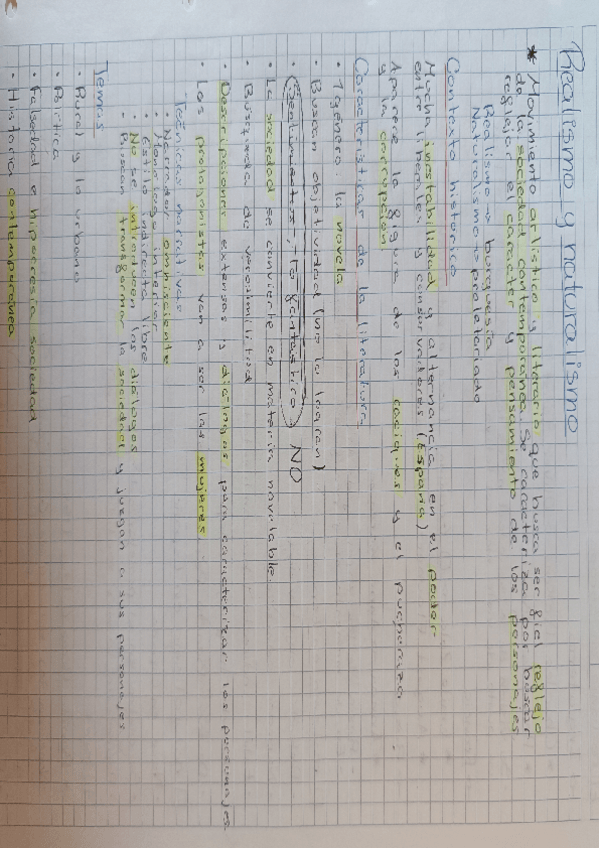 Realismo y naturalismo
* Movimiento artístico y literario que busca ser fiel reflejo
de la sociedad contemporánea. Se caracteriza por buscar
reflejar el carácter y pensamiento de los personajes
Realismo → burguesía
Naturalismo → proletariado
Contexto histórico
Mucha inestabilidad y alternancia en el poder
entre liberales y conservadores (España)
Aparece la figura de los caciques y el pucherazo
y la corrupción
Características de la literatura
• 1 género: la novela
• Buscan objetividad (no la logran)
• Sentimientos, lo fantástico NO
• La sociedad se convierte en materia novelable
• Búsqueda de verosimilitud
• Descripciones extensas y diálogos para caracterizar los personajes
• Los protagonistas van a ser las mujeres
Técnicas narrativas
• Narrador omnisciente
• Monólogo interior
• Estilo indirecto libre
• No se introducen los diálogos
• Buscan transformar la sociedad y juzgan a sus personajes
Temas
• Rural y lo urbano
• Política
• Falsedad e hipocresía sociedad
• Historia contemporánea